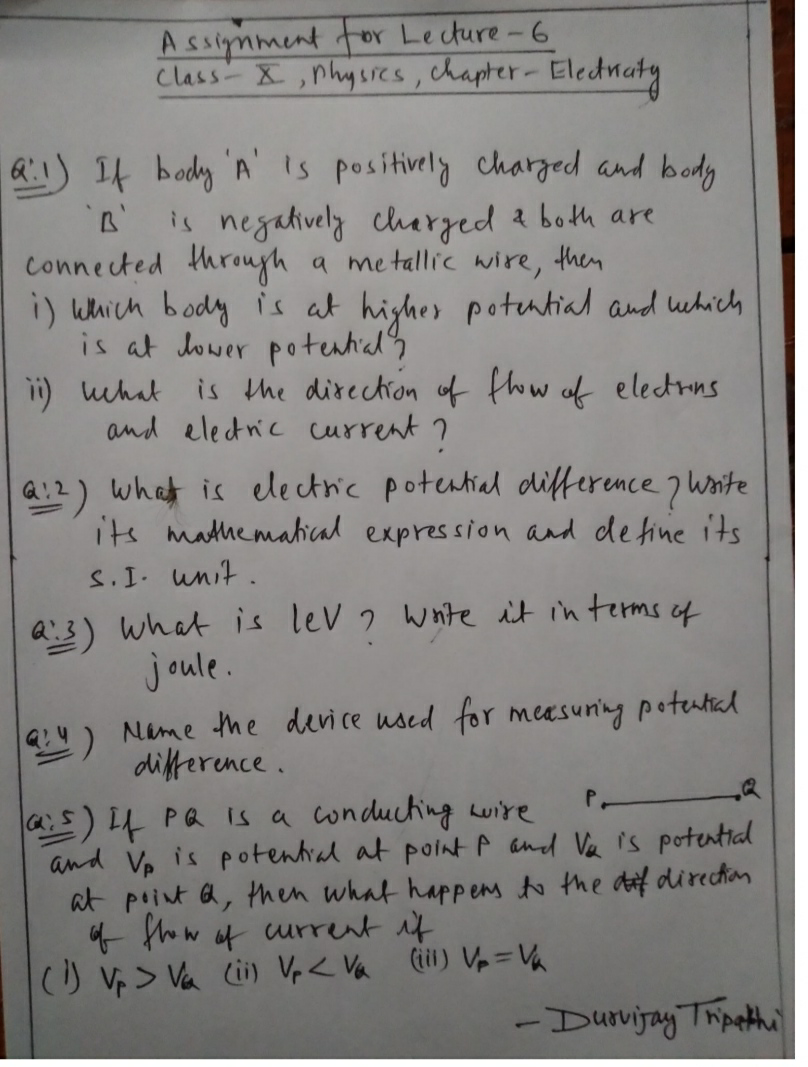 Assignment for Lecture-6
Class-X, Physics, Chapter-Electricity
Q:1) If body 'A' is positively charged and body
'B' is negatively charged & both are
connected through a metallic wire, then
i) Which body is at higher potential and which
is at lower potential?
ii) What is the direction of flow of electrons
and electric current?
Q:2) What is electric potential difference? Write
its mathematical expression and define its
S.I. unit.
Q:3) What is 1eV? Write it in terms of
joule.
Q:4) Name the device used for measuring potential
difference.
P Q
Q:5) If PQ is a conducting wire
and Vp is potential at point P and VQ is potential
at point Q, then what happens to the direction
of flow of current if
(i) Vp > VQ (ii) Vp < VQ (iii) Vp = VQ
- Durvijay Tripathi